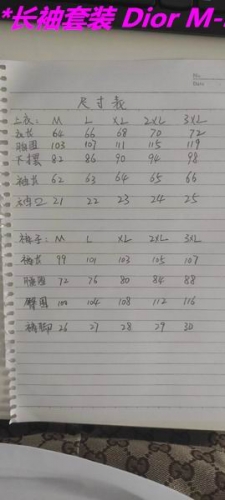 *长袖套装 Dior M-
尺寸表
上衣: M L XL 2XL 3XL
衣长 64 66 68 70 72
胸围 103 107 111 115 119
下摆 82 86 90 94 98
袖长 62 63 64 65 66
袖口 21 22 23 24 25
裤子: M L XL 2XL 3XL
裤长 99 101 103 105 107
腰围 72 76 80 84 88
臀围 100 104 108 112 116
裤脚 26 27 28 29 30